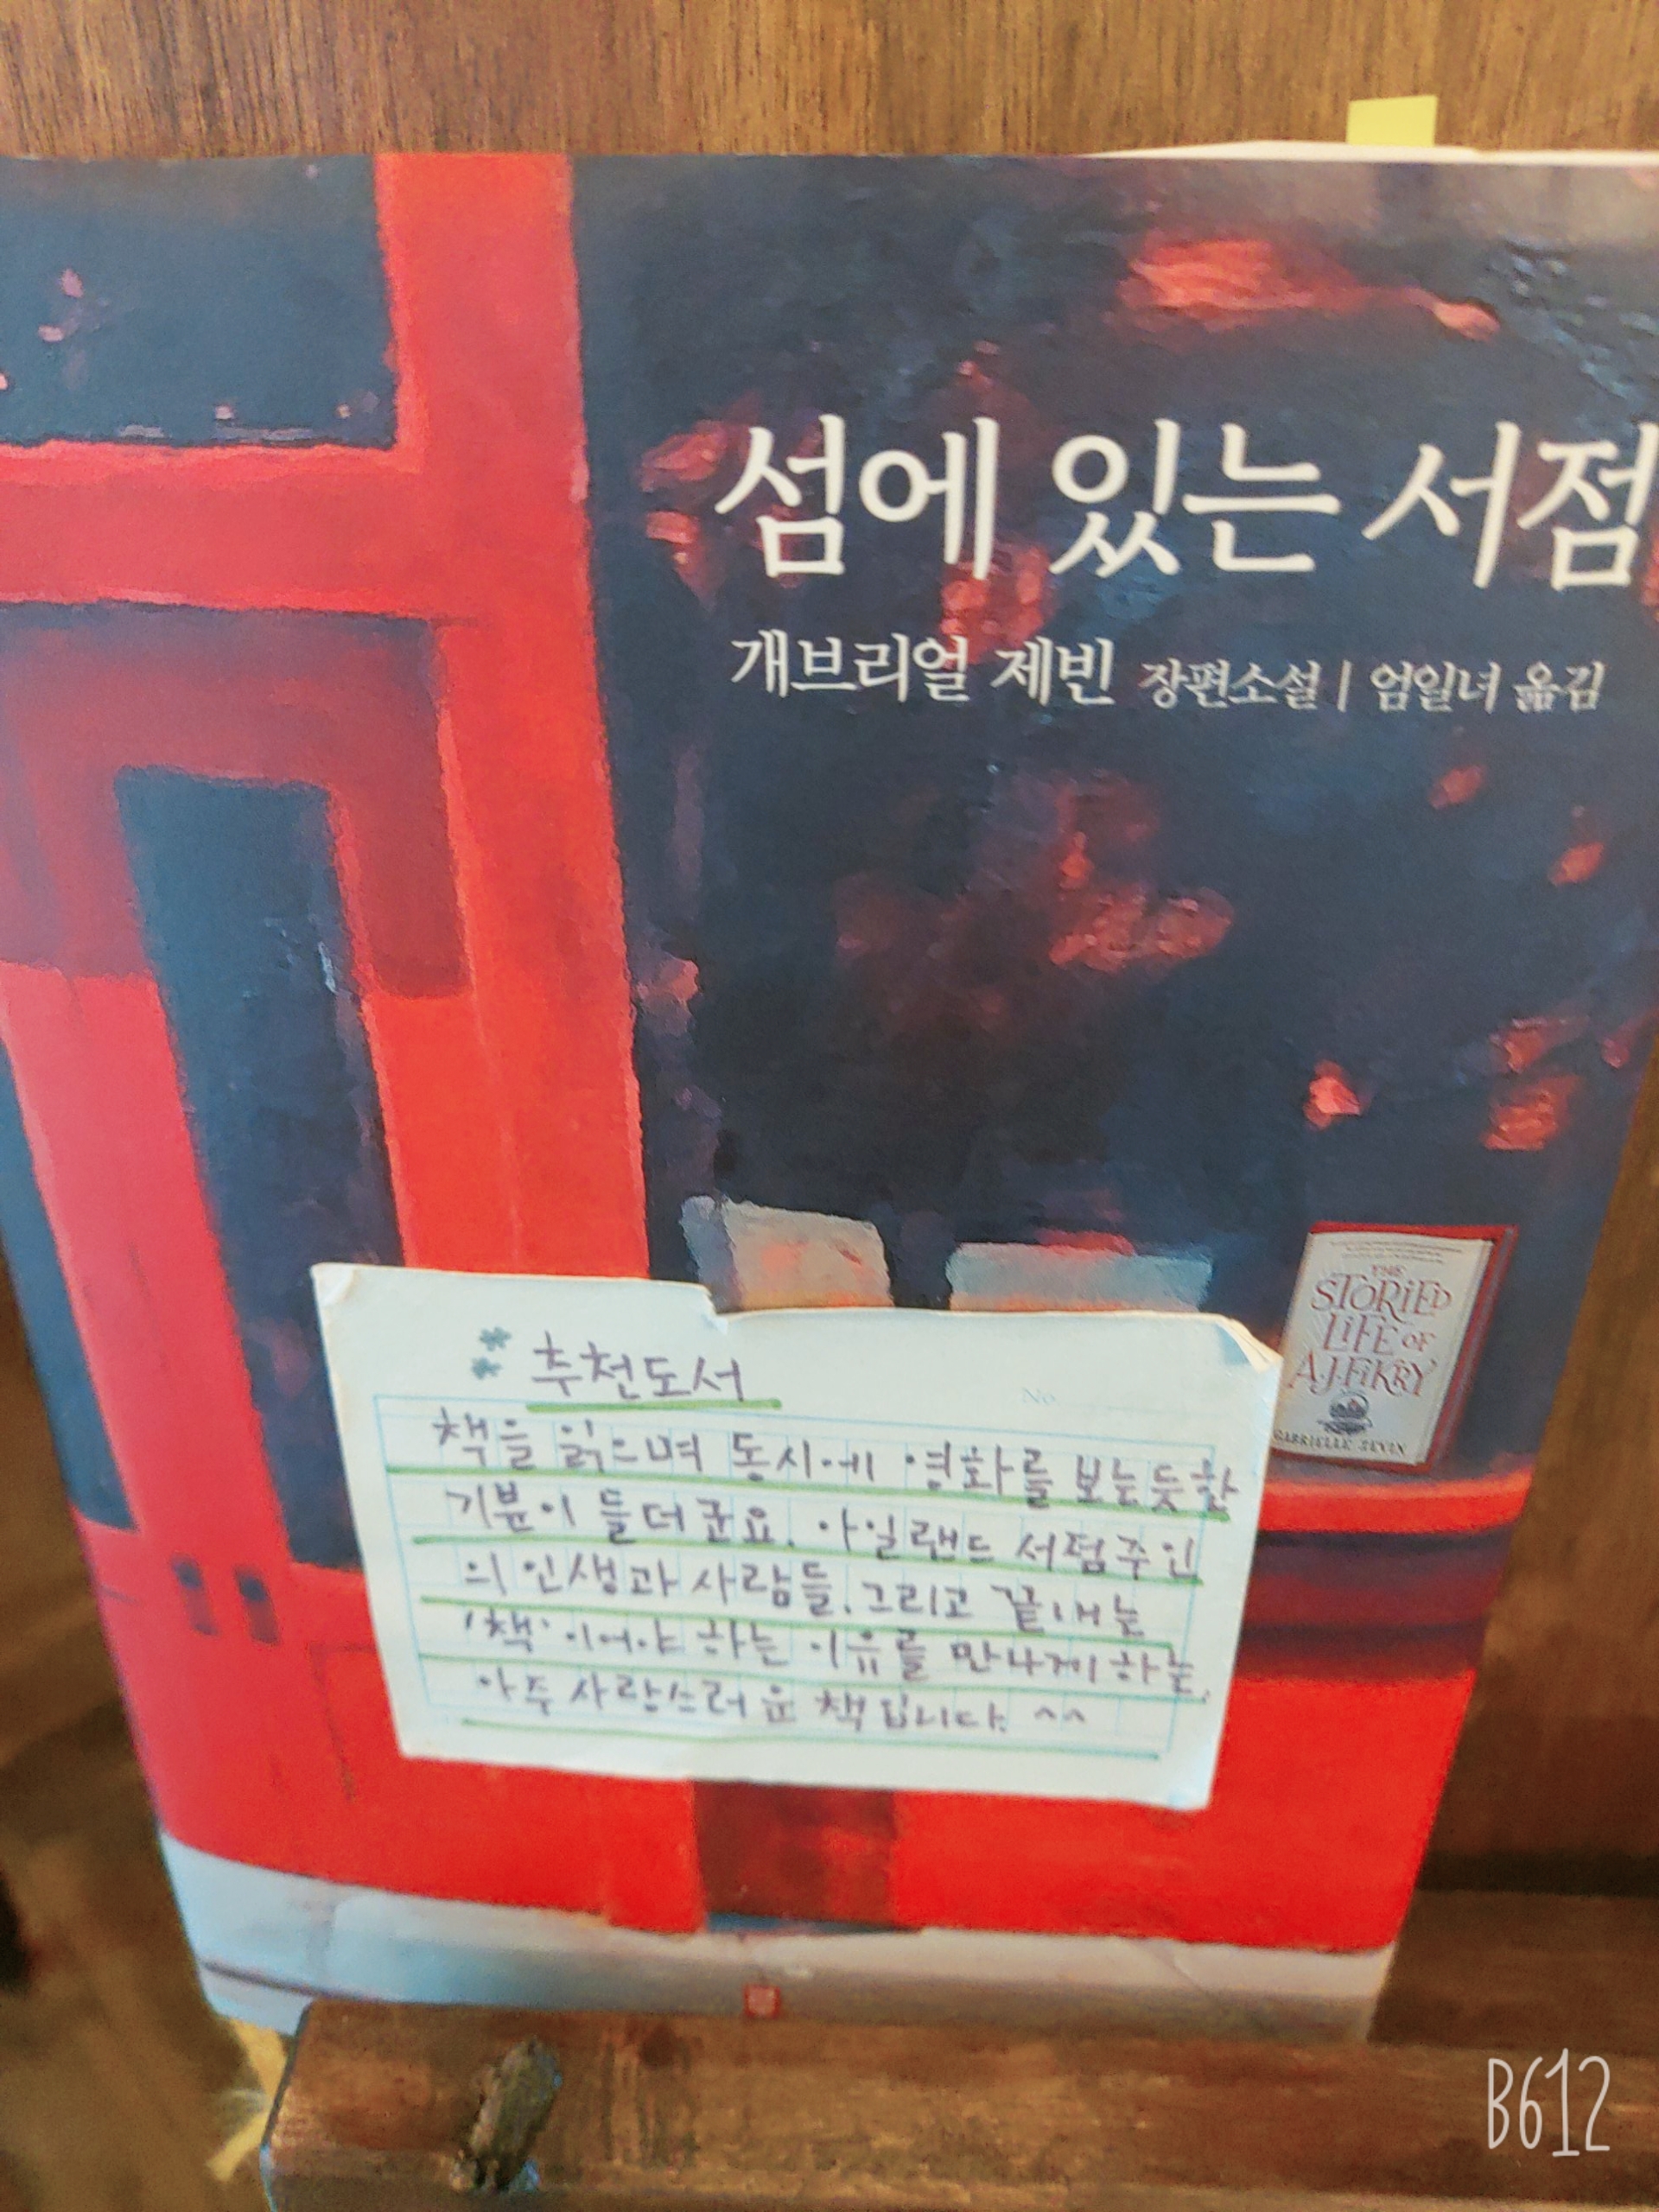 섬에 있는 서점
개브리얼 제빈 장편소설 | 엄일녀 옮김
THE
STORIED
LIFE OF
A.J. FIKRY
GABRIELLE ZEVIN
추천도서
No
책을 읽으며 동시에 영화를 보는듯한
기분이 들더군요. 아일랜드 서점주인
의 인생과 사람들, 그리고 끝내는
'책' 이어야 하는 이유를 만나게 하는,
아주 사랑스러운 책입니다. ^^
B612